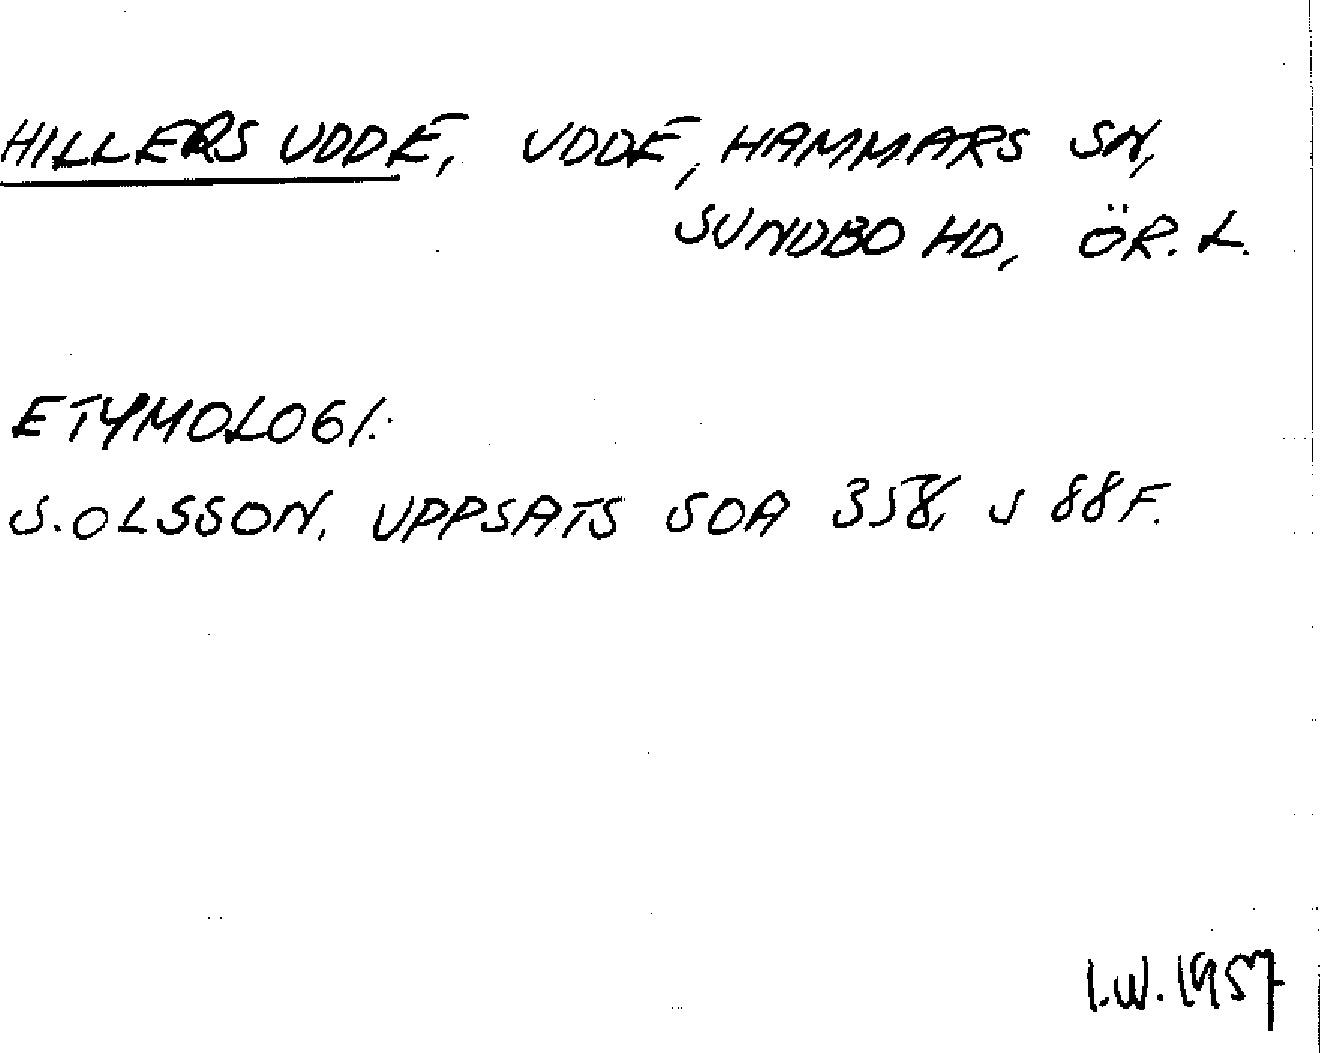 HILLERS UDDE, UDDE, HAMMARS SN,
SUNDBO HD, ÖR. L.
ETYMOLOGI:
S. OLSSON, UPPSATS SOA 358, S 88 F.
I.W. 1957